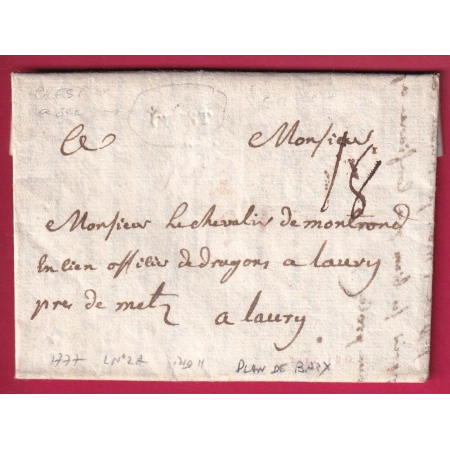 CREST
a sec
CREST
a Monsieur
18
Monsieur le chevalier de montrond
Encien officier de dragons a laury
pres de metz a laury
1777 LN°2A PLAN DE BAIX